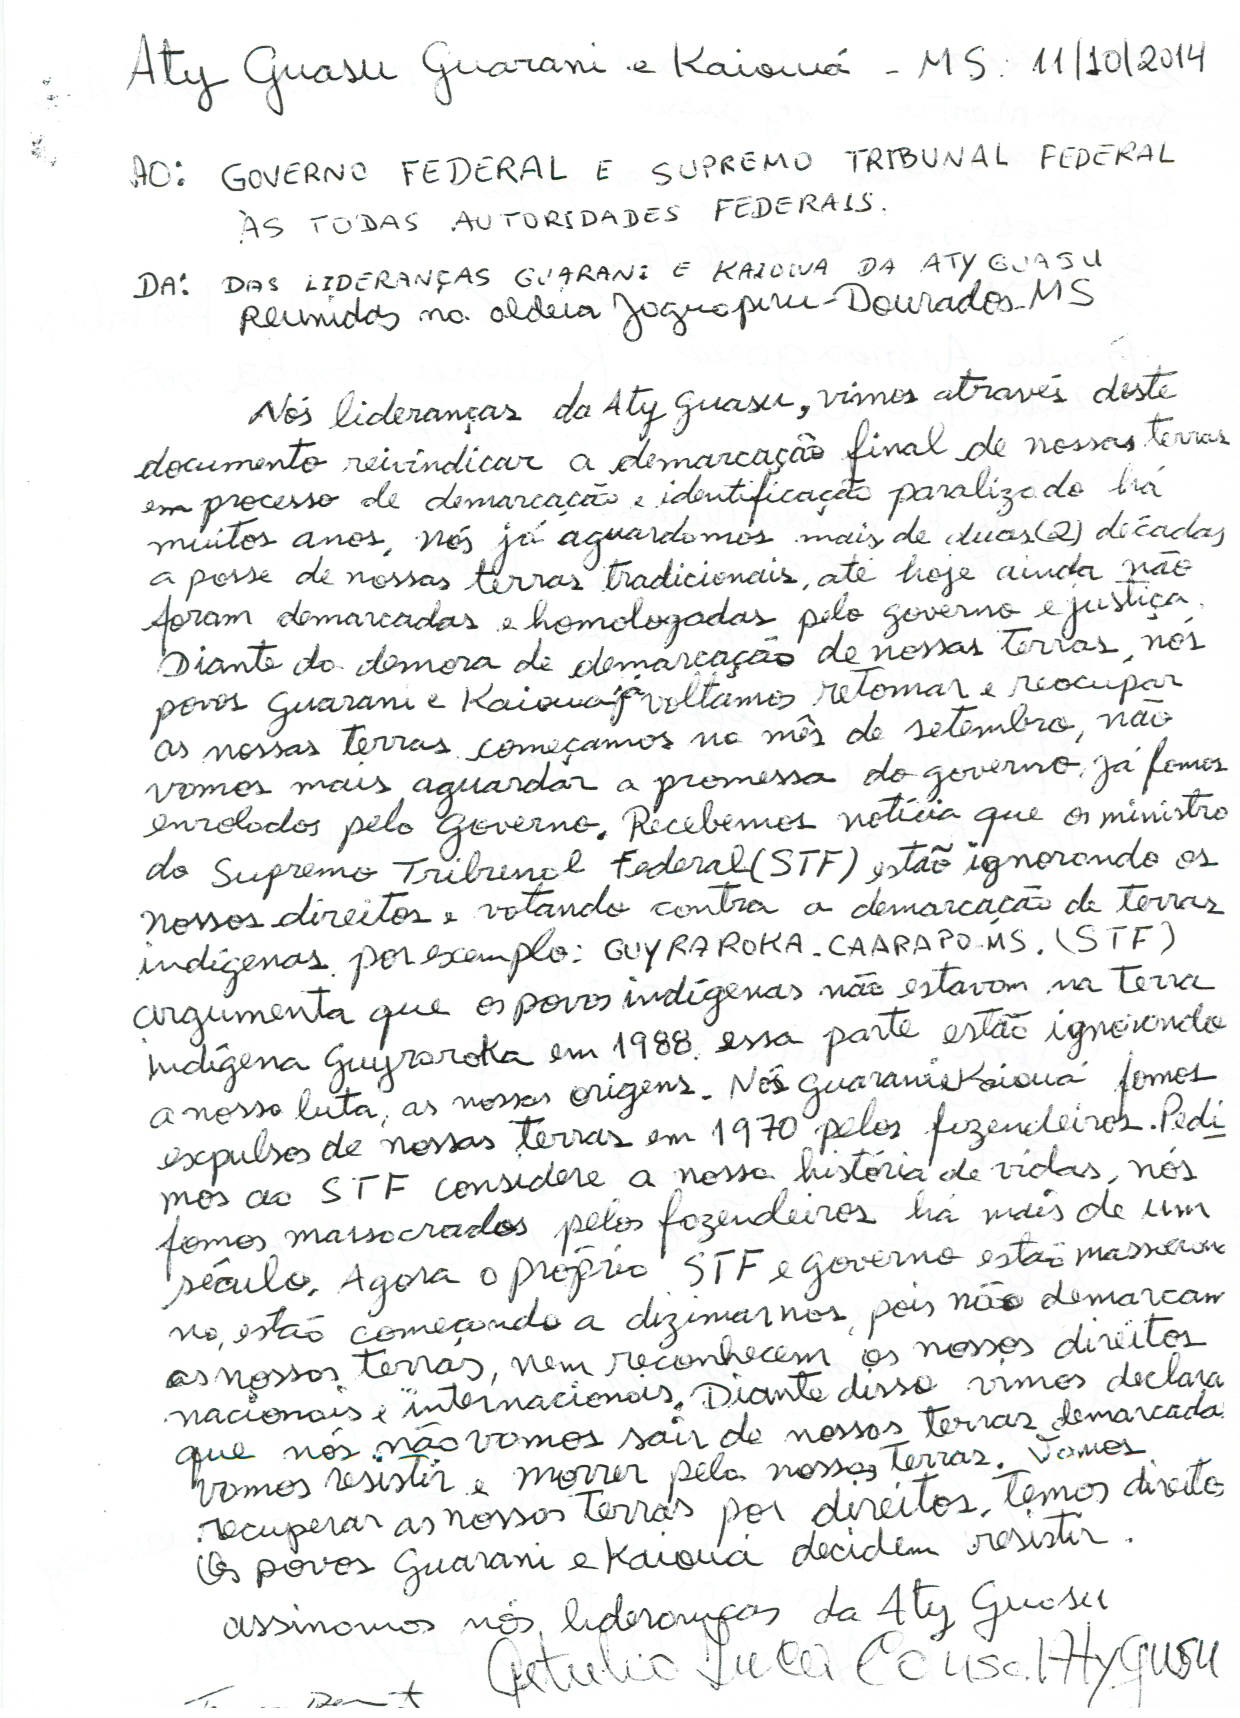 Aty Guasu Guarani e Kaiowá - MS. 11/10/2014
AO: GOVERNO FEDERAL E SUPREMO TRIBUNAL FEDERAL
ÀS TODAS AUTORIDADES FEDERAIS.
DA: DAS LIDERANÇAS GUARANI E KAIOWA DA ATY GUASU
Reunidas na aldeia Jaguapiru-Dourados-MS
Nós lideranças da Aty Guasu, vimos através deste
documento reivindicar a demarcação final de nossas terras
em processo de demarcação e identificação paralizado há
muitos anos, nós já aguardamos mais de duas (2) décadas
a posse de nossas terras tradicionais, até hoje ainda não
foram demarcadas e homologadas pelo governo e justiça.
Diante da demora de demarcação de nossas terras, nós
povos Guarani e Kaiowa já voltamos retomar e reocupar
as nossas terras começamos no mês de setembro, não
vamos mais aguardar a promessa do governo, já fomos
enrolados pelo Governo. Recebemos notícia que os ministro
do Supremo Tribunal Federal (STF) estão ignorando os
nossos direitos e votando contra a demarcação de terras
indígenas, por exemplo: GUYRAROKA-CAARAPO-MS. (STF)
argumenta que os povos indígenas não estavam na terra
indígena Guyraroka em 1988, essa parte estão ignorando
a nossa luta, as nossas origens. Nós Guarani e Kaiowá fomos
expulsos de nossas terras em 1970 pelos fazendeiros. Pedi
mos ao STF considere a nossa história de vidas, nós
fomos massacrados pelos fazendeiros há mais de um
século. Agora o próprio STF e governo estão
no, estão começando a dizimarnos, pois não demarcam
as nossas terras, nem reconhecem os nossos direitos
nacionais e internacionais. Diante disso vimos declara
que nós não vamos sair de nossas terras demarcada
vamos resistir e morrer pela nossas terras. Vamos
recuperar as nossas terras por direitos, temos direito
Os povos Guarani e Kaiowá decidem resistir.
assinamos nós, lideranças da Aty Guasu
Getulio Juca Aty Guasu